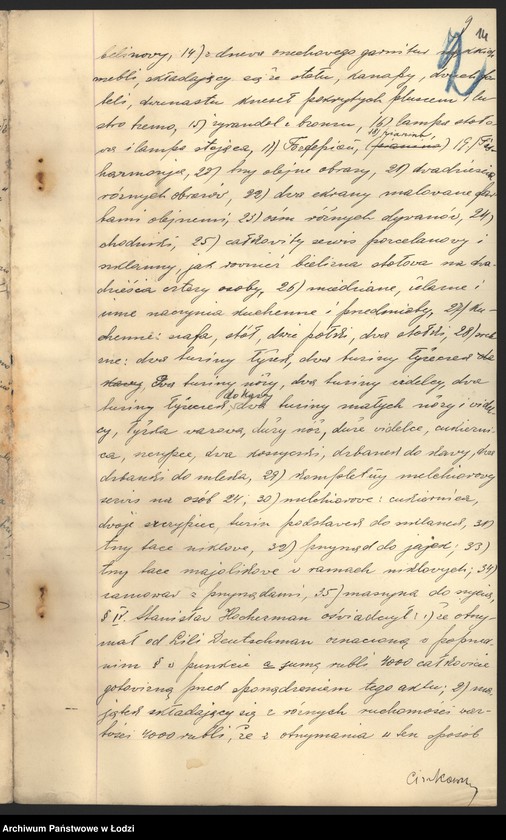 9 14
belinowy, 14) z drzewa orzechowego garnitur
mebli, składający się ze stołu, kanapy, dwóch fo
teli, dwunastu krzeseł pokrytych pluszem i lu
stro tremo, 15) żyrandol z bronzu, 16) lampa stoło
wa i lampa stojąca, 17) Fortepian, 18) pianino, (pianino) 19) Fis
harmonja, 20) trzy olejne obrazy, 21) dwadzieścia
różnych obrazów, 22) dwa ekrany malowane far
bami olejnemi, 23) osm różnych dywanów, 24)
chodniki, 25) całkowity serwis porcelanowy i
szklanny, jak również bielizna stołowa na dwa
dzieścia cztery osoby, 26) miedziane, żelazne i
inne naczynia kuchenne i przedmioty, 27) ku-
chenne: szafa, stół, dwie półki, dwa stołki, 28)
dwa tuziny łyżek, dwa tuziny łyżeczek
dwa tuziny noży, dwa tuziny widelcy, dwa
tuziny łyżeczek do kawy, dwa tuziny małych noży i widel
cy, łyżka wazowa, duży nóż, duże widelce, cukierni
ca, dwa koszyczki, dzbanek do kawy, dwa
dzbanki do mleka, 29) kompletny melchiorowy
serwis na osób 24, 30) melchiorowe: cukiernica,
dwoje szczypiec, tuzin podstawek do szklanek, 31)
trzy tace niklowe, 32) przyrząd do jajek; 33)
trzy tace majolikowe w ramach niklowych; 34)
samowar z przyrządami, 35) maszyna do szycia,
§ IV. Stanisław Hocherman oświadczył: 1) że otrzy-
mał od Lili Deutschman oznaczoną w poprzed-
nim § w punkcie a sumę rubli 4000 całkowicie
gotowizną przed sporządzeniem tego aktu; 2) ma
jątek składający się z różnych ruchomości war-
tości 4000 rubli, że z otrzymania w ten sposób
Archiwum Państwowe w Łodzi